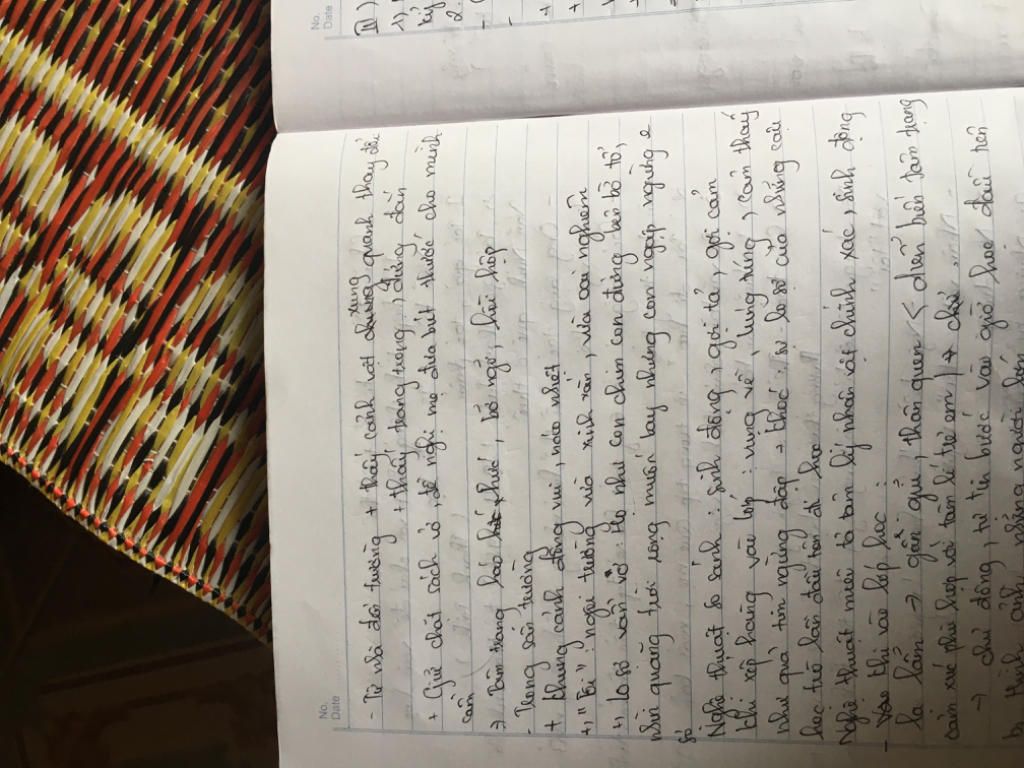 No.
Date
- Từ nhà đến trường + thấy cảnh vật xung quanh thay đổi
+ thấy trang trọng, đứng đắn
+ Ghì chặt sách vở, đề nghị mẹ đưa bút thước cho mình
cầm
→ Tâm trạng háo hức, bỡ ngỡ, hồi hộp
- Trong sân trường
+ khung cảnh đông vui, náo nhiệt
+ "Tôi": ngôi trường vừa xinh xắn, vừa oai nghiêm
+ lo sợ vẩn vơ. Họ như con chim con đứng bên bờ tổ,
nhìn quãng trời rộng muốn bay nhưng còn ngập ngừng e
sợ
Nghệ thuật so sánh: sinh động, gợi tả, gợi cảm
khi xếp hàng vào lớp: vụng về, lúng túng, cảm thấy
như quả tim ngừng đập → khóc: sự lo sợ của những cậu
học trò lần đầu tiên đi học
Nghệ thuật miêu tả tâm lý nhân vật chính xác, sinh động
- khi vào lớp học:
lạ lắm → gần gũi, thân quen < diễn biến tâm trạng
cảm xúc phù hợp với tâm lí trẻ em
→ chủ động, tự tin bước vào giờ học đầu tiên
b, Hình ảnh những người lớn
No.
Date
II)
1)
2.
-
-
+
+